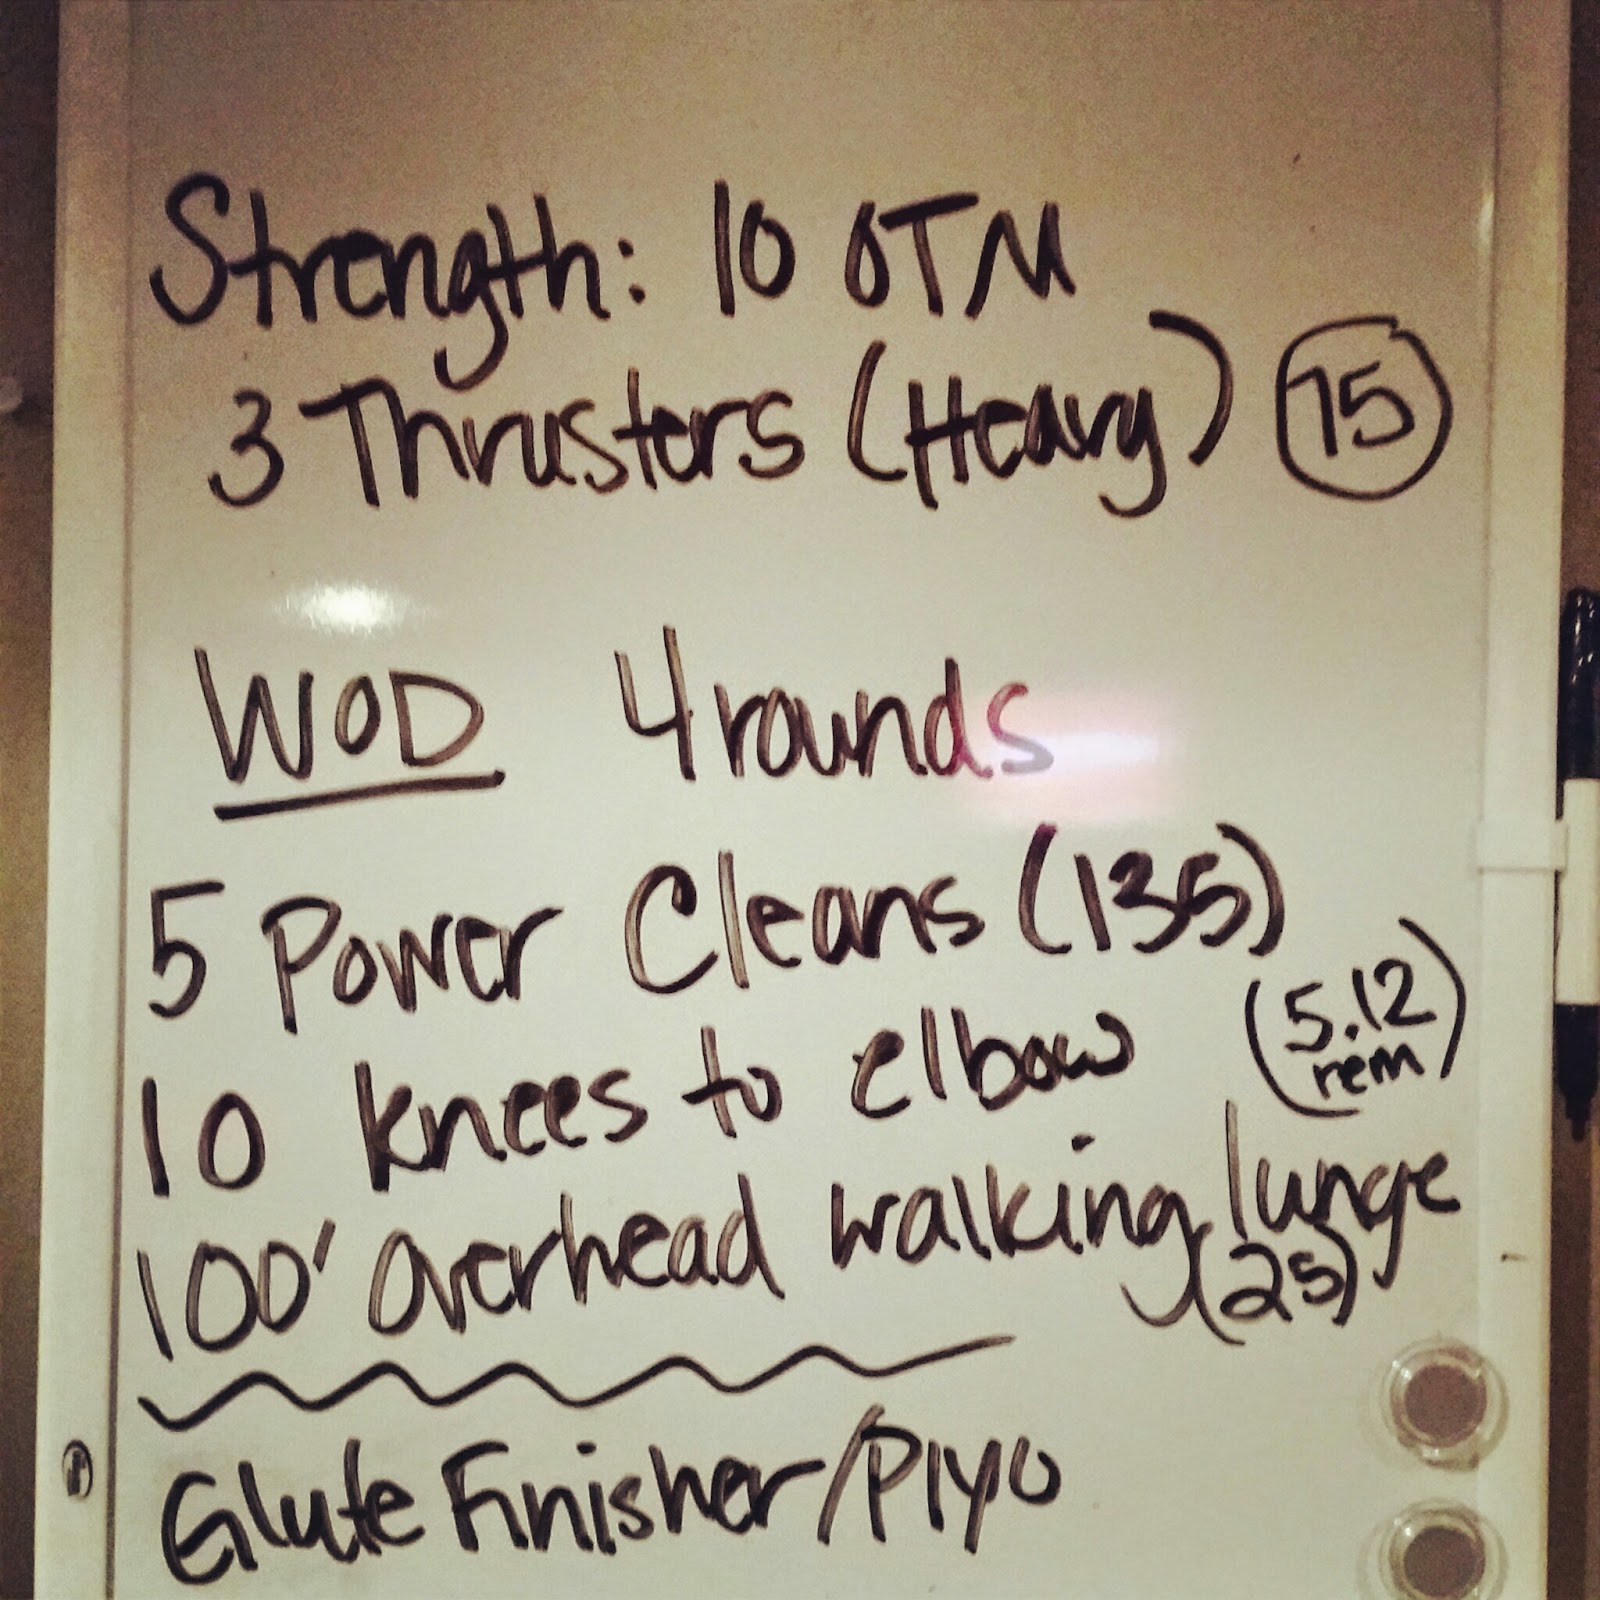 Strength: 10 OTM
3 Thrusters (Heavy) 75
WOD 4 rounds
5 Power Cleans (135)
10 knees to elbow (5.12 rem)
100' overhead walking lunge (25)
Glute Finisher/PiYo